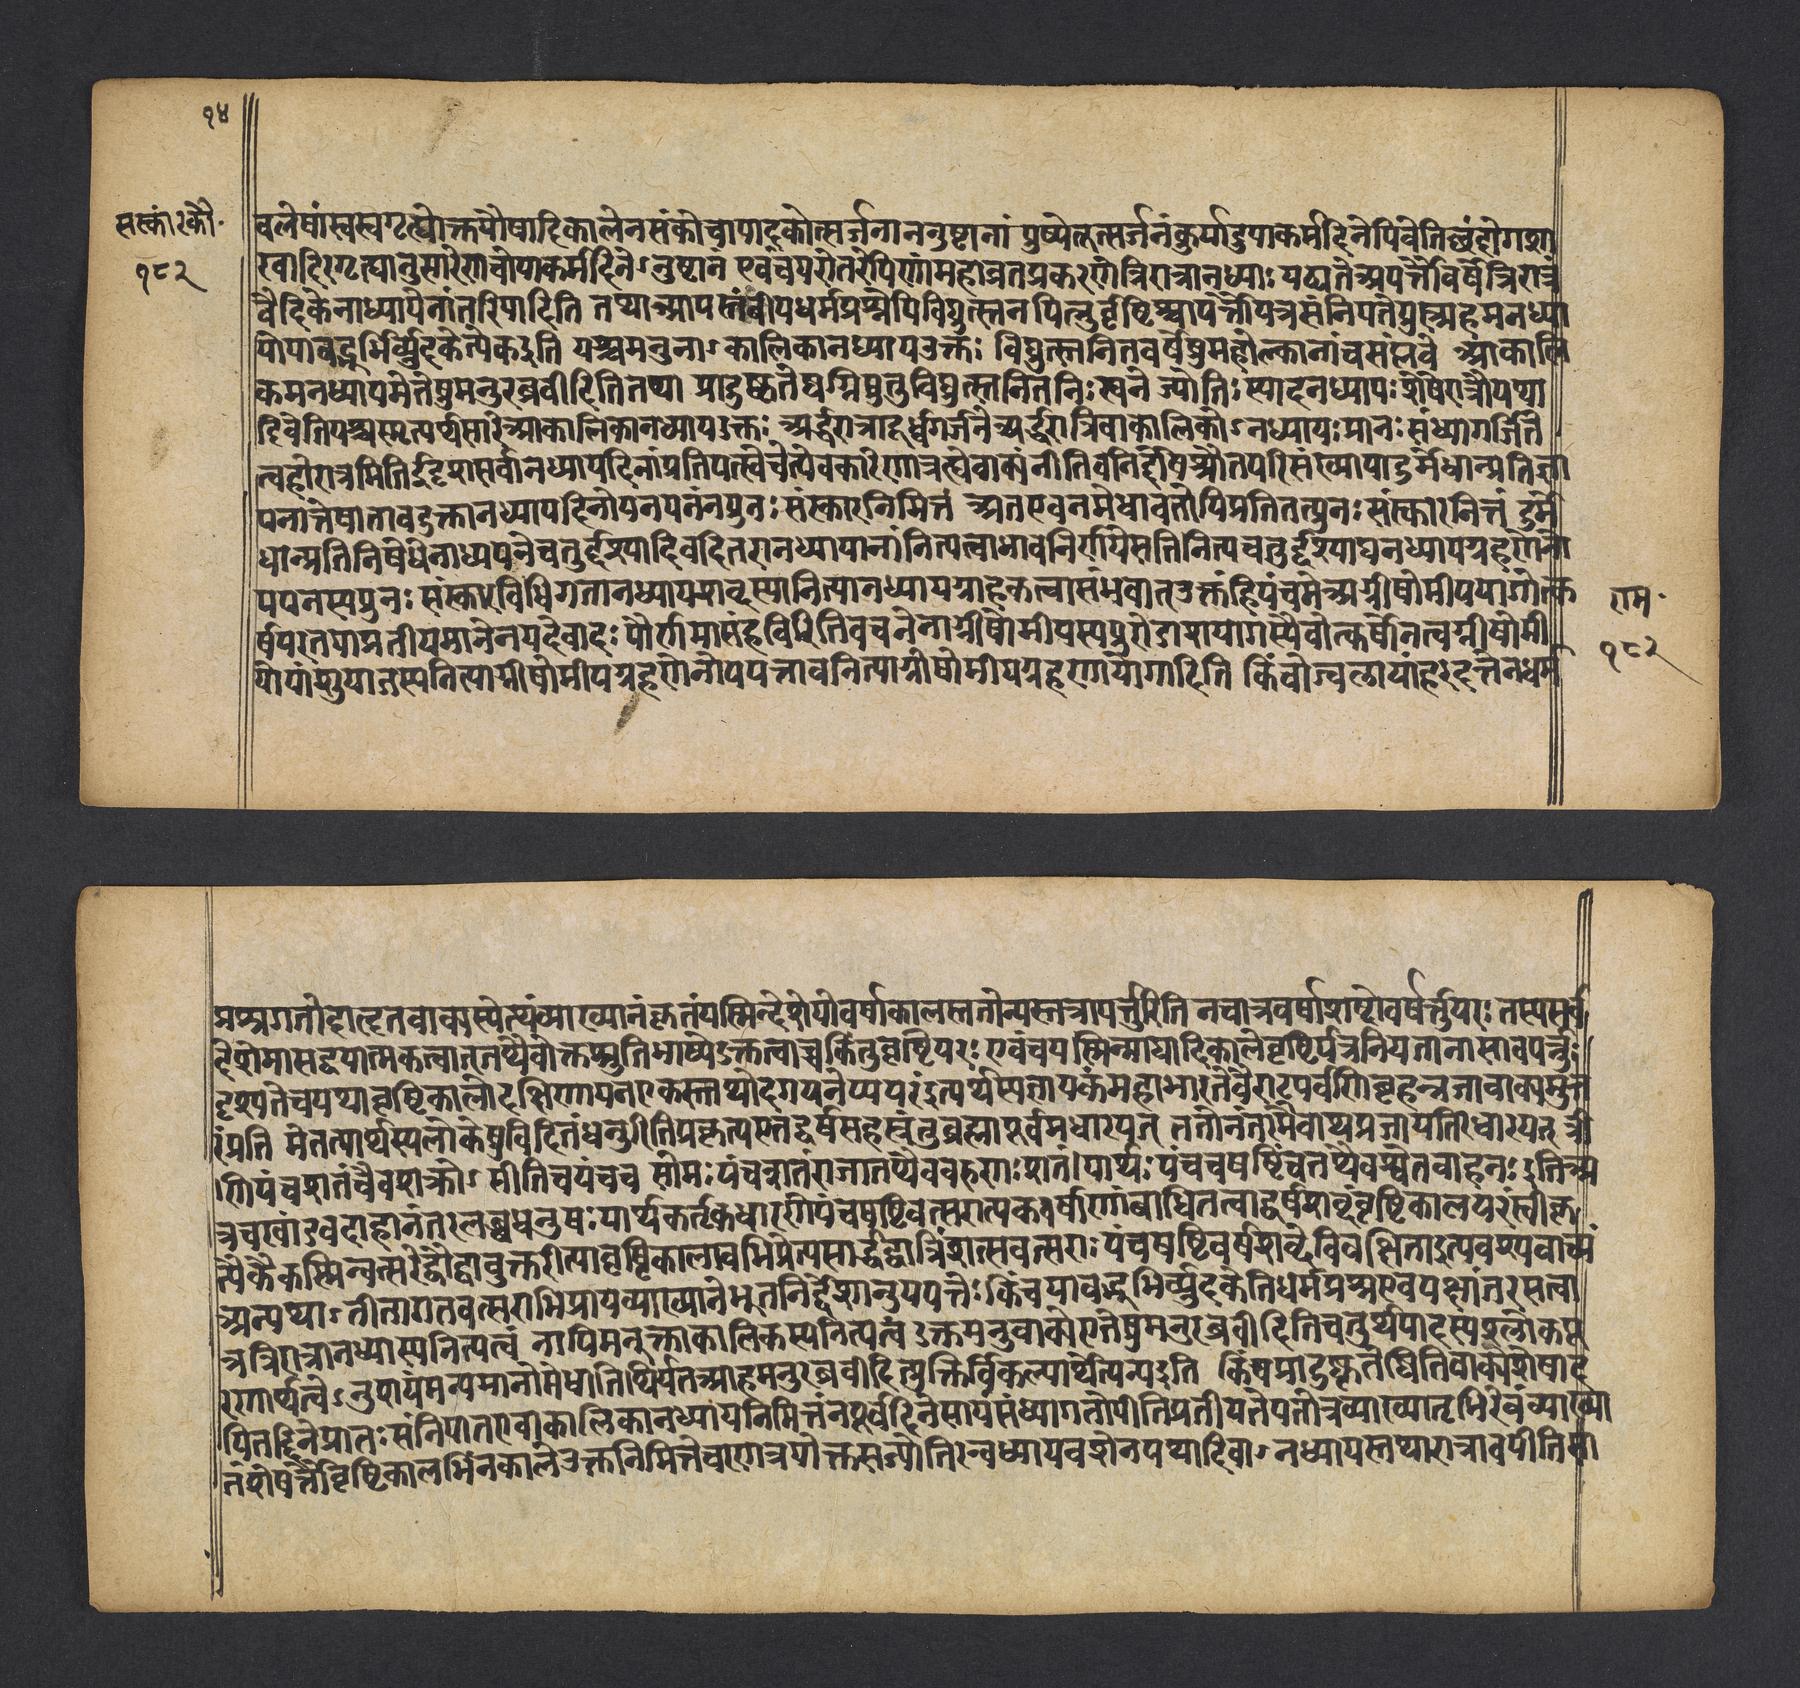 १४
सस्कांरकौ.
१८२
वलेषांस्वस्वगृत्द्योक्तपौषादिकालेनसंकोचोपादकोत्सर्जनाननुष्टानां पुष्येतूत्सर्जनंकुर्यादुपाकर्मदिनेपिवेतिछंदोगशा
खादिरगृत्द्यानुसारेणचोपाकर्मदिने ऽनुष्टान एवंचपरोतरेपिणांमहाव्रतप्रकरणंत्रिरात्रानध्याः पठ्यतेअपर्त्तौवर्षेत्रिरात्रं
वैदिकेनाध्यायेनांतरियादिति तथाआपस्तंबीयधर्मप्रश्नेपिविद्युत्स्तनयित्नुर्वृष्टिश्चापर्त्तौयत्रसंनिपतेयुस्त्र्यहमनध्या
योयावद्भूमिर्व्युदकेत्येकइति यश्चमनुनाऽकालिकानध्यायउक्तः विद्युत्स्तनितवर्षेषुमहोल्कानांचसंप्लवे आकालि
कमनध्यायमेतेषुमनुरब्रवीदितितथा प्रादुष्कृतेष्वग्निषुतुविद्युत्स्तनितनिःस्वने ज्योतिः स्यादनध्यायः शेषेरात्रौयथा
दिवेतियश्चस्मृत्यर्थसारेआकालिकानध्यायउक्तः अर्द्धरात्रादूर्ध्वगर्जनेअर्द्धरात्रिवाकालिकोऽनध्यायः प्रातः संध्यागर्जिते
त्वहोरात्रमितिर्द्दृशसर्वानध्यायदिनांप्रतिपत्स्वेचेत्येवकारेणात्रत्स्येवाक्यंनीतिवेनिर्द्देषश्रौतपरिसंख्यापादुर्मेधान्प्रतिज्ञा
पनात्तेषातावदुक्तानध्यायदिनोपनयनंनपुनः संस्कारनिमित्तं अतएवनमेधावतोपिप्रतितत्पुनः संस्कारनित्तं दुर्मे
धान्प्रतिनिषेधेनाध्ययनेचतुर्द्दश्यादिवदितरानध्यायानांनित्यत्वाभावनिर्णयेसतिनित्यचतुर्द्दश्याद्यनध्यायग्रहणेनो
पपनस्यपुनः संस्कारविधिगतानध्यायशब्दस्यानित्यानध्यायग्राहकत्वासंभवात्उक्तंहिपंचमेअग्नीषोमीययागोत्क
र्षपरतयाप्रतीयमानेनयदेवादः पौर्णमासंहविरितिवचनेनाग्नीषोमीयस्यपुरोडाशयागस्यैवोत्कर्षोनत्वग्नीषोमी
योपांशुयाजस्यतित्याग्नीषोमीयग्रहणेनोपपत्तावनित्याग्नीषोमीयग्रहणायोगादिति किंचोज्वलायांहरदत्तेनधर्म
राम.
१८२
प्रश्नगतोदाहृतवाक्यस्येत्थंव्याख्यानंकृतंयस्मिन्देशेयोवर्षाकालस्ततोन्यस्तत्रापर्त्तुरिति नचात्रवर्षाशब्दोवर्षर्त्तुपरः तस्यसर्व
देशेमासद्वयात्मकत्वात्तथैवोक्तश्रुतिभाष्येउक्तत्वाच्चकिंतुवृष्टिपरः एवंचयस्मिन्माघादिकालेवृष्टिर्यत्रनियतानासावपर्त्तुः
दृश्यतेचयथावृष्टिकालोदक्षिणायनएकस्तथोदगयनेप्यपरइत्यर्थस्यज्ञापकंमहाभारतेवैराटपर्वणिबृहन्नजावाक्यमुत्त
रंप्रति मेतत्पार्थस्यलोकेषुविदितंधनुरितिप्रकृत्यस्तद्वर्षसहस्रंतुब्रह्मापूर्वमधारयत् ततोनंतरमेवाथप्रजापतिरधारयत् त्री
णिपंचशतंचैवशक्रोऽसीतिचपंचच सोमः पंचशतंराजातथैववरुणः शतं। पार्थः पंचचषष्टिंचतथैवश्वेतवाहनः इतिअ
त्रचखांडवदाहानंतरलब्धधनुषः पार्थकर्तृकधारणेपंचषष्टिवत्सरात्मकवर्षाणांबाधितत्वाद्वर्षशब्दंवृष्टिकालपरंस्वीकृ
त्यैकैकस्मिन्वत्सरेद्वौद्वावुक्तरीत्यावृष्टिकालावभिप्रेत्यसार्द्धद्वात्रिंशत्संवत्सराः पंचषष्टिवर्षशब्देविवक्षिताइत्यवश्यवाच्यं
अन्यथाऽतीतागतवत्सराभिप्रायव्याख्यानेभूतनिर्द्देशानुपपत्तेः किंचयावद्भूमिर्व्युदकेतिधर्मप्रश्नएवपक्षांतरसत्वा
न्नत्रिरात्रानध्यास्यनित्यत्वं नापिमनूक्ताकालिकस्यनित्यत्वं उक्तमनुवाक्येएतेषुमनुरब्रवीदितिचतुर्थपादस्यश्लोकपू
रणार्थत्वेऽनुपायंमन्यमानोमेधातिथिर्यतआहमनुरब्रवीदित्युक्तिर्विकल्पार्थेत्यन्यइति किंचप्रादुष्कृतेष्वितिवाक्येशेषाद
पितद्दिनेप्रातः संनिपातएवाकालिकानध्यायनिमित्तंनपूर्वदिनेसायंसंध्यागतोपीतिप्रतीयतेयतोत्रव्याख्यातृभिरेवंव्याख्या
तंशेषर्त्तौवृष्टिकालभिंनकालेउक्तनिमित्तेचरात्रयोक्तसज्योतिरन्वध्यायवशेनयथादिवाऽनध्यायस्तथारात्रावपीतिषा